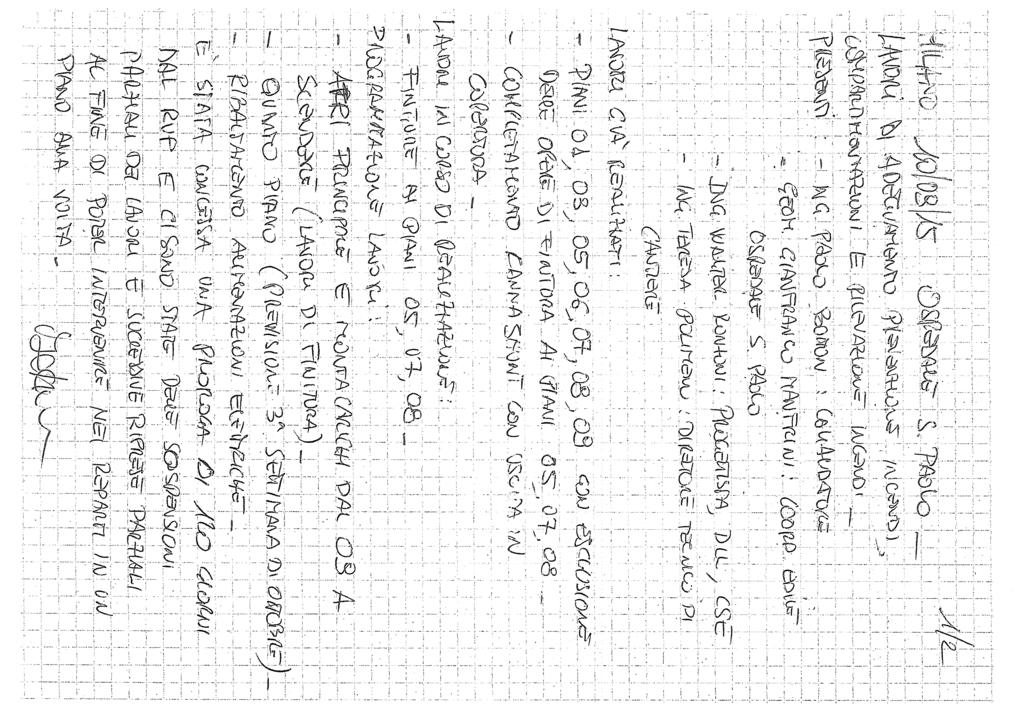 1/2
MILANO 10/08/15 OSPEDALE S. PAOLO_
LAVORI DI ADEGUAMENTO PREVENZIONE INCENDI,
COMPARTIMENTAZIONI E RILEVAZIONE INCENDI_
PRESENTI: - ING PAOLO : COLLAUDATORE
- GEOM. GIANFRANCO MANFRINI: COORD. EDILE
OSPEDALE S. PAOLO
- ING. WALTER : PROGETTISTA, DLL, CSE
- ING. TERESA : DIRETTORE TECNICO DI
CANTIERE
LAVORI GIÀ REALIZZATI:
- PIANI 01, 03, 05, 06, 07, 08, 09 CON ESCLUSIONE
DELLE OPERE DI FINITURA AI PIANI 05, 07, 08_
- COMPLETAMENTO CANNA SHUNT CON USCITA IN
COPERTURA_
LAVORI IN CORSO DI REALIZZAZIONE:
- FINITURE AI PIANI 05, 07, 08_
PROGRAMMAZIONE LAVORI:
- ATRI PRINCIPALE E MONTACARICHI DAL 09 A
SCENDERE (LAVORI DI FINITURA)_
- QUINTO PIANO (PREVISIONE 3ª SETTIMANA DI OTTOBRE)_
- RIBALTAMENTO ALIMENTAZIONI ELETTRICHE_
È STATA CONCESSA UNA PROROGA DI 120 GIORNI
DAL RUP E CI SONO STATE DELLE SOSPENSIONI
PARZIALI DEI LAVORI E SUCCESSIVE RIPRESE PARZIALI
AL FINE DI POTER INTERVENIRE NEI REPARTI IN UN
PIANO ALLA VOLTA_